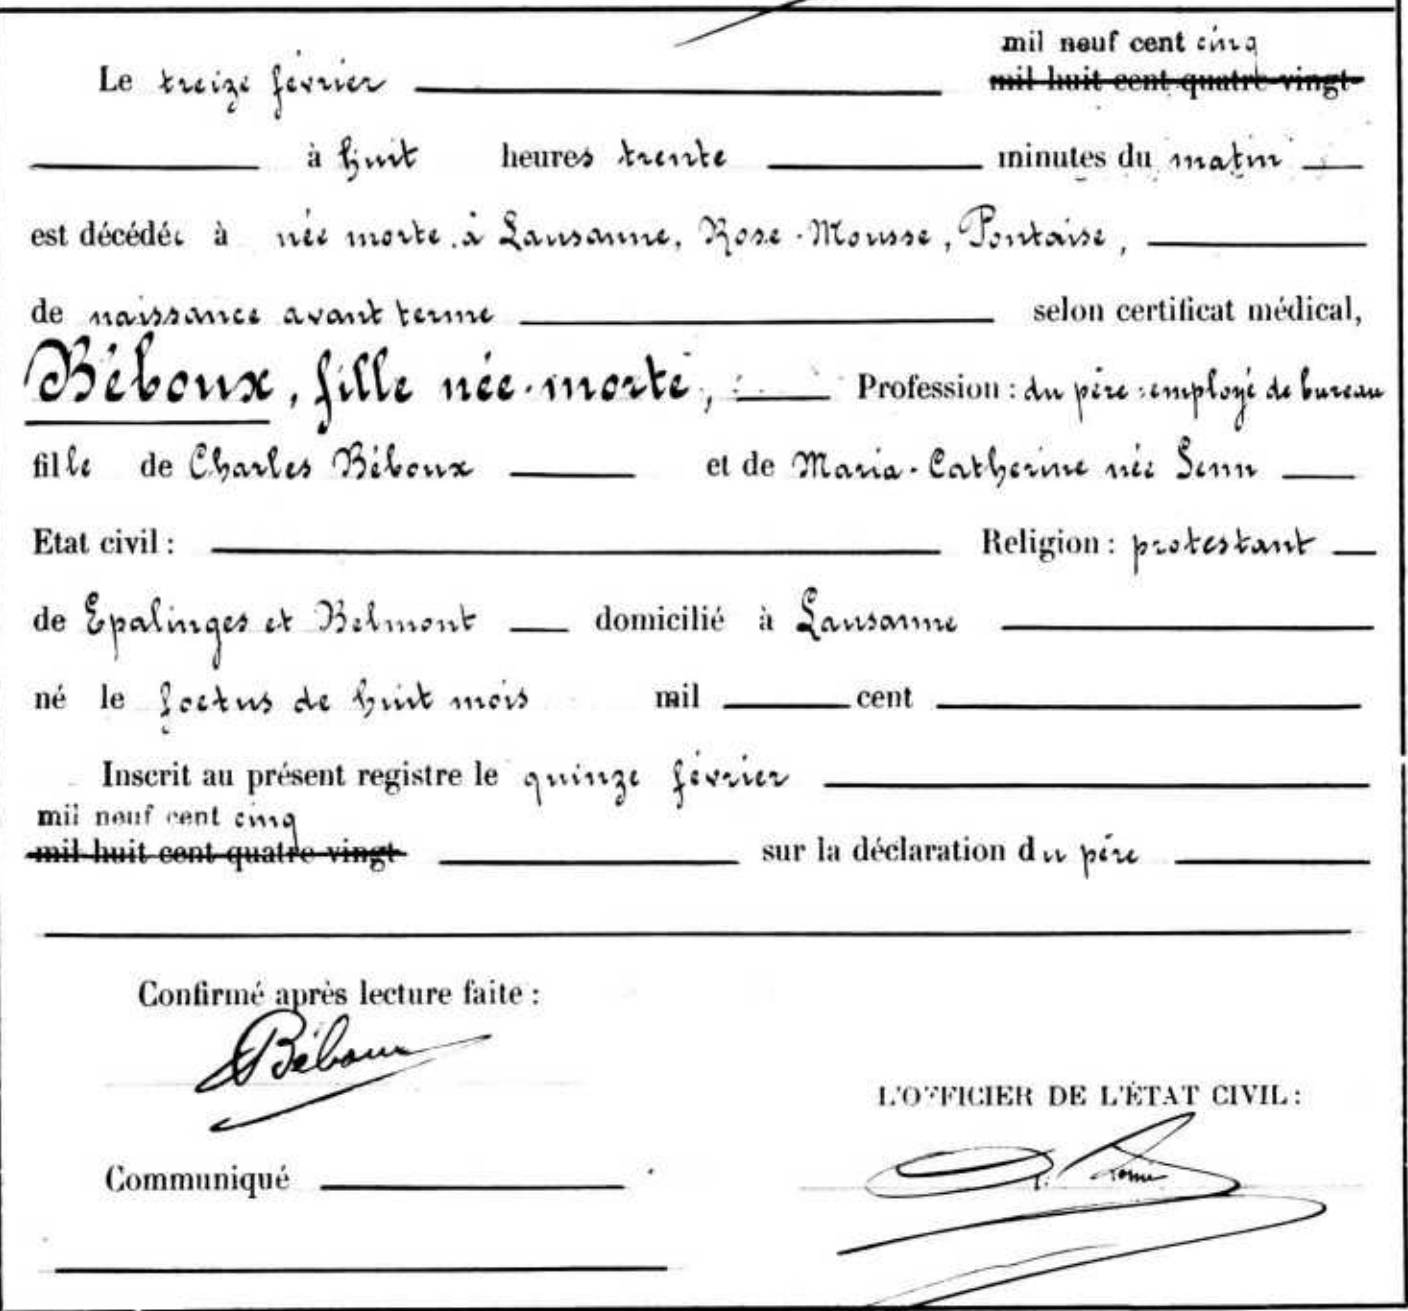 mil neuf cent cinq
Le treize février mil huit cent quatre-vingt-
à huit heures trente minutes du matin
est décédée à née morte à Lausanne, Rose-Mousse, Pontaise,
de naissance avant terme selon certificat médical,
Béboux, fille née-morte, Profession : du père : employé de bureau
fille de Charles Béboux et de Maria-Catherine née Senn
Etat civil : Religion : protestant
de Epalinges et Belmont domicilié à Lausanne
né le foetus de huit mois mil cent
Inscrit au présent registre le quinze février
mil neuf cent cinq
mil huit cent quatre-vingt- sur la déclaration du père
Confirmé après lecture faite :
Béboux
L'OFFICIER DE L'ÉTAT CIVIL :
Communiqué